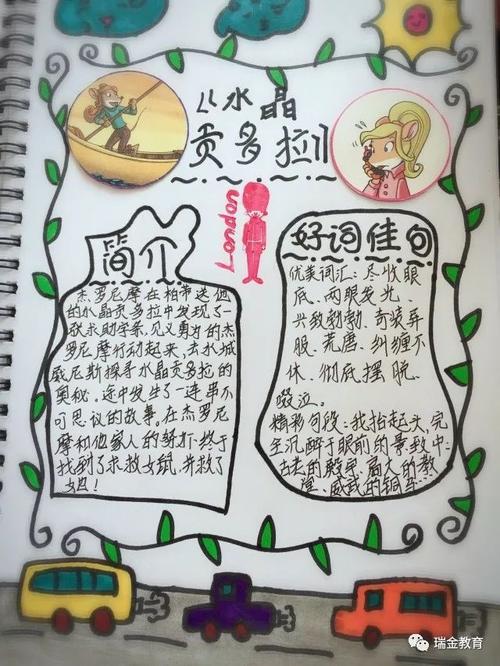 《水晶
贡多拉》
London
简介
杰罗尼摩在柏蒂送他
的水晶贡多拉中发现了一
张求助字条,见义勇为的杰
罗尼摩行动起来,去水城
威尼斯探寻水晶贡多拉的
奥秘。途中发生了一连串不
可思议的故事。在杰罗尼
摩和他家人的
找到了求救女鼠,并救了
她!
好词佳句
优美词汇:尽收眼
底、两眼发光、
兴致勃勃、奇装异
服、荒唐、纠缠不
休、彻底摆脱、
啜泣。
精彩句段:我抬起头,完
全沉醉于眼前的景致中:
古老的殿堂、高大的教
堂、威武的铜
瑞金教育